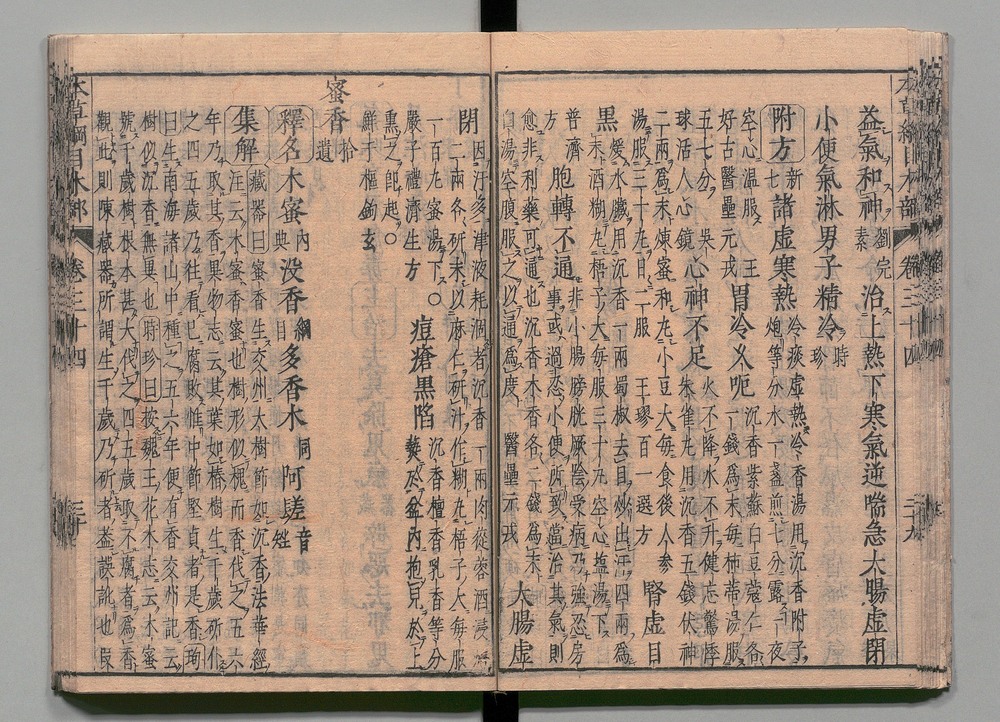 本草綱目木部 卷三十四
益氣和神劉完素治上熱下寒氣逆喘急大腸虛閉
小便氣淋男子精冷時珍
附方新七諸虛寒熱冷痰虛熱冷香湯用沉香附子炮等分水一盞煎七分露一夜
空心溫服王好古醫壘元戎胃冷久呃沉香紫蘇白豆蔻仁各一錢爲末每柿蒂湯服
五七分吳球活人心鏡心神不足火不降水不升健忘驚悸朱雀丸用沉香五錢伏神
二兩爲末煉蜜和丸小豆大每食後人參湯服三十丸日二服王璆百一選方腎虛目
黑煖水臟用沉香一兩蜀椒去目炒出汗四兩爲末酒糊丸梧子大每服三十丸空心塩湯下
普濟方胞轉不通非小腸膀胱厥陰受病乃強忍房事或過忍小便所致當治其氣則
愈非利藥可通也沉香木香各二錢爲末白湯空腹服之以通爲度醫壘元戎大腸虛
閉因汗多津液耗涸者沉香一兩肉蓯蓉酒浸焙二兩各研末以麻仁研汁作糊丸梧子大每服
一百丸蜜湯下○嚴子禮濟生方痘瘡黑陷沉香檀香乳香等分爇於盆內抱兒於上
熏之即起○鮮于樞鉤玄
蜜香拾遺
釋名木蜜內典没香綱目多香木同阿𨲠音矬
集解藏器曰蜜香生交州大樹節如沉香法華經注云木蜜香蜜也樹形似槐而香伐之五六
年乃取其香異物志云其葉如椿樹生千歲斫仆
之四五歲乃往看已腐敗惟中節堅貞者是香珣
曰生南海諸山中種之五六年便有香交州記云
樹似沉香無異也時珍曰按魏王花木志云木蜜
號千歲樹根本甚大伐之四五歲取不腐者爲香
觀此則陳藏器所謂生千歲乃斫者蓋誤訛也段
本草綱目木部 卷三十四